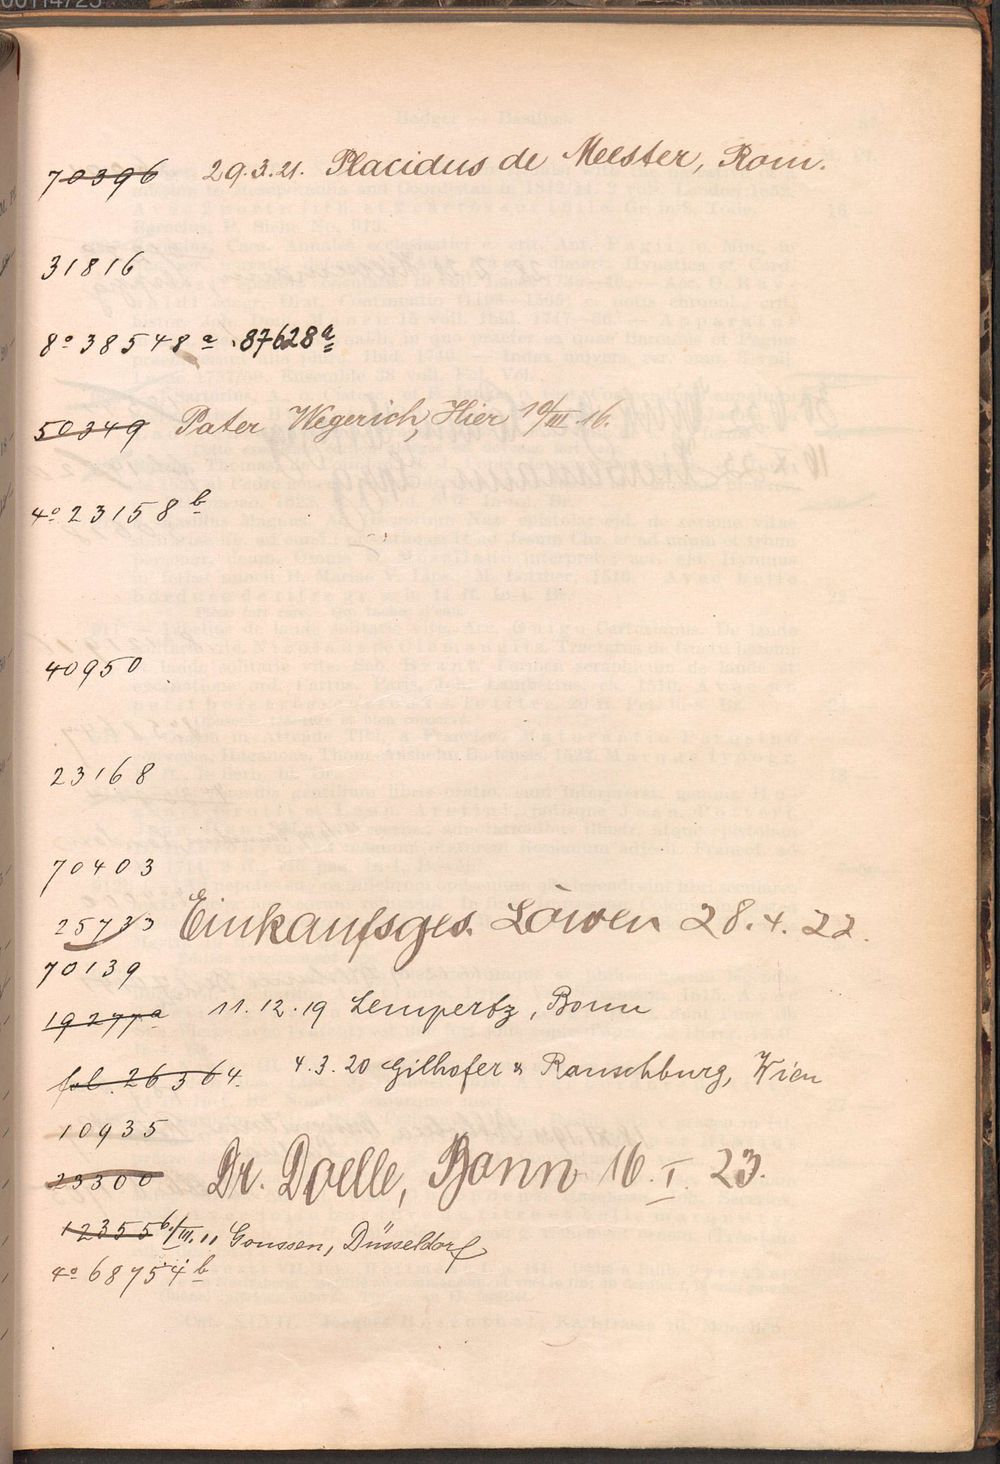 70396 29.3.21. Placidus de Meester, Rom.
31816
8° 38548 a . 87628 a
50349 Pater Wegerich, Hier 10/III. 16.
4° 23158 b
40950
23168
70403
25733 Einkaufsges. Löwen 28.4.22.
70139
19277a 11.12.19 Lempertz, Bonn
fol. 26364. 4.3.20 Gilhofer & Ranschburg, Wien
10935
23300 Dr. Doelle, Bonn 16. I. 23.
12355 6/III. 11 Goussen, Düsseldorf
4° 68754 b